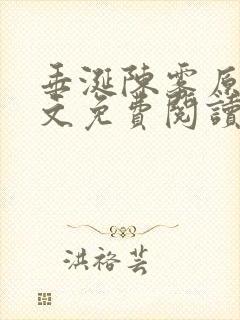 垂涎陳雾原
文免費閱讀
洪裕芸